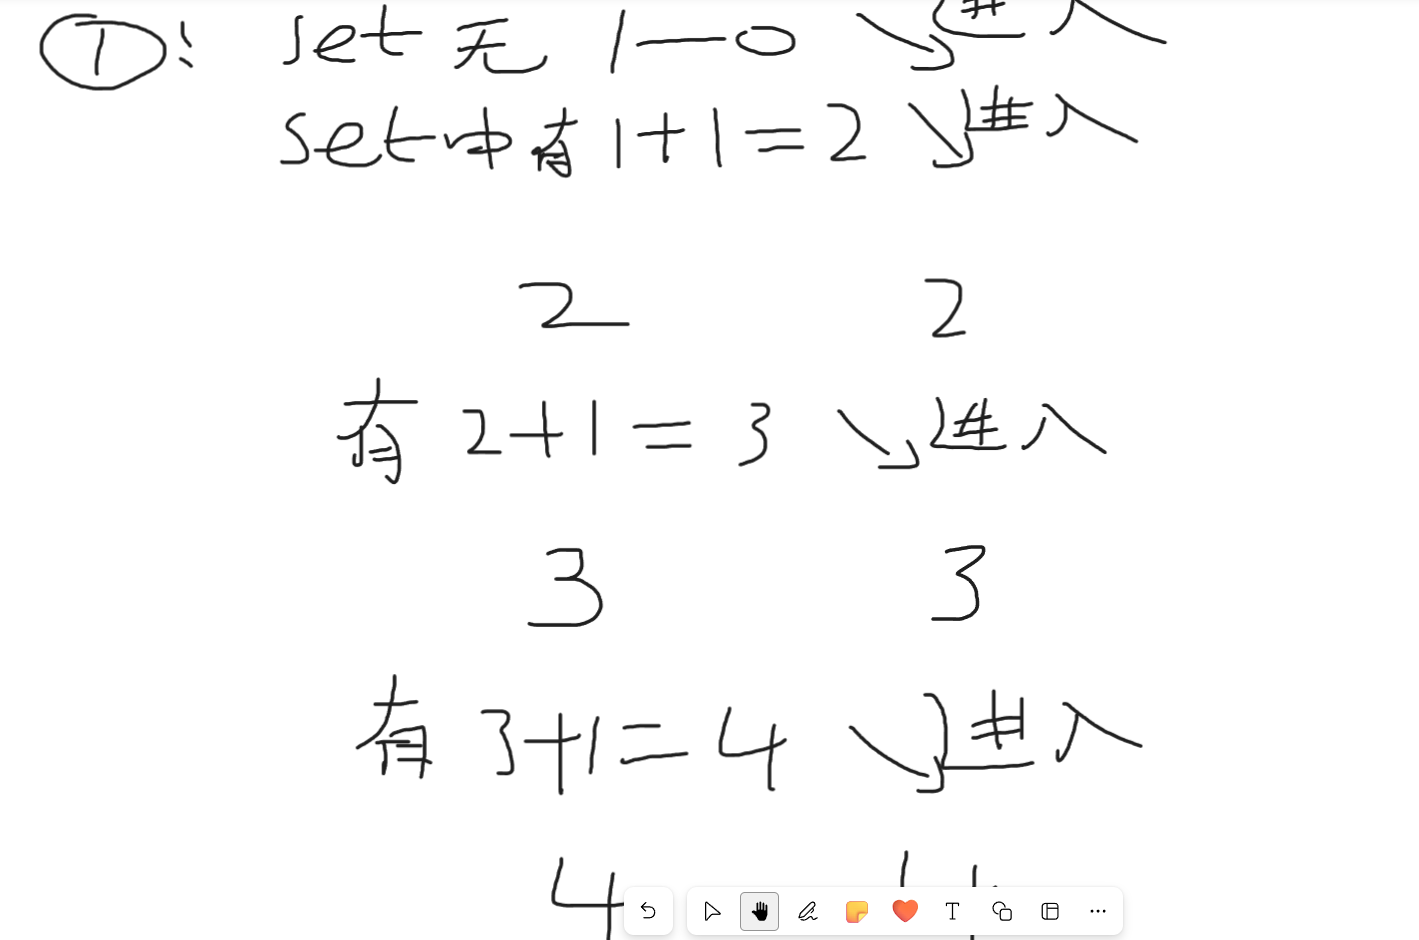 ①: set 无 1—0 ↘ 进入
set中有 1+1=2 ↘ 进入
2 2
有 2+1=3 ↘ 进入
3 3
有 3+1=4 ↘ 进入
4
T